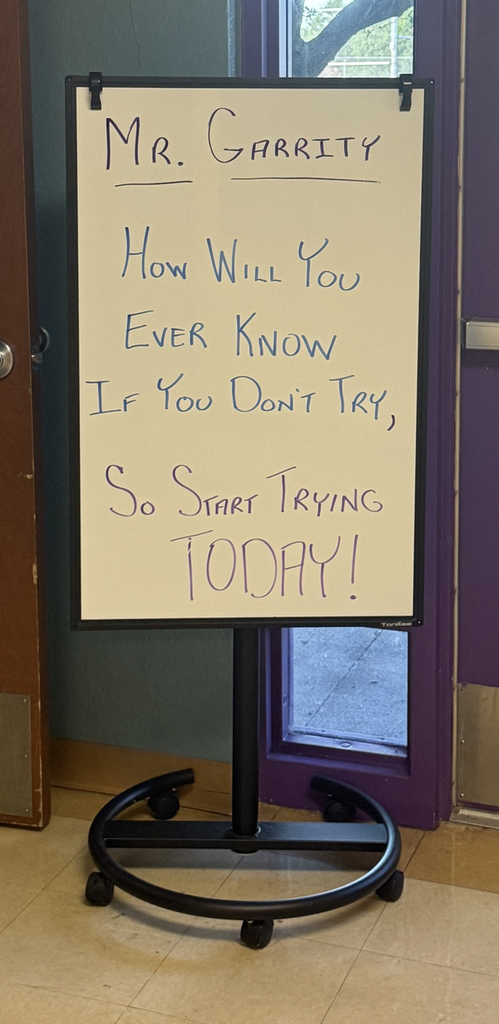 MR. GARRITY
HOW WILL YOU
EVER KNOW
IF YOU DON'T TRY,
SO START TRYING
TODAY!